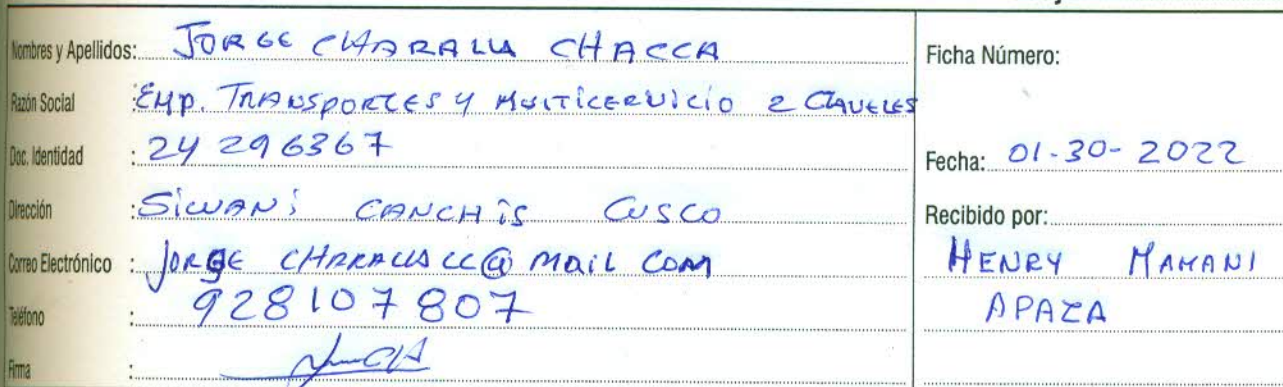 Nombres y Apellidos: JORGE CHARALLA CHACCA
Razón Social : EMP. TRANSPORTES Y MULTICERVICIO 2 CLAVELES
Doc. Identidad : 24 296367
Dirección : SICUANI CANCHIS CUSCO
Correo Electrónico : JORGE CHARALLA CC@MAIL COM
Teléfono : 928107807
Firma :
Ficha Número:
Fecha: 01-30-2022
Recibido por:
HENRY MAMANI
APAZA